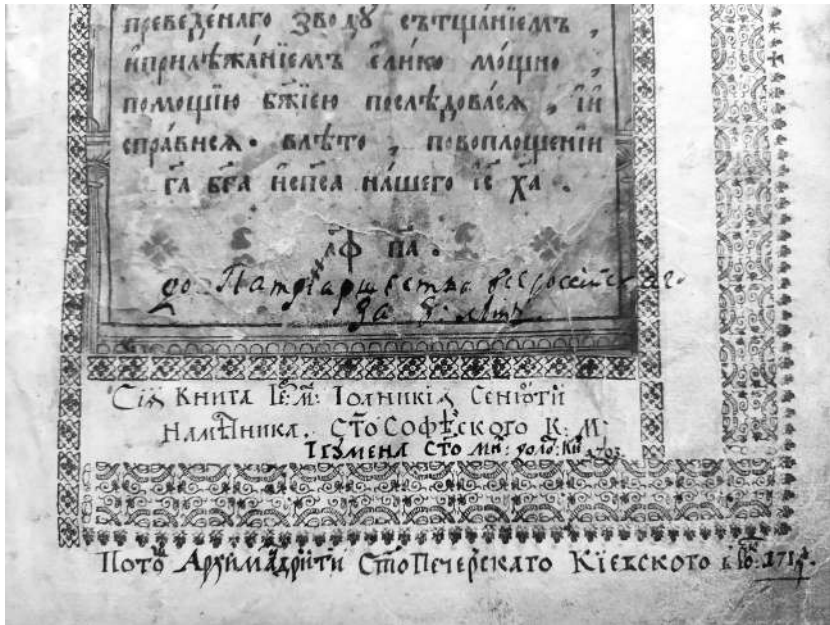 преведе́наго зводу сътща́нїемъ ,
и҆прилѣжа́нїемъ є҆ли́ко мо́щно ,
по́мощїю бж҃їею послѣ́довася , и҆
спра́вися . влѣ́то , повоплоще́нїи
гд҃а бг҃а и҆сп҃са на́шего і҆с҃ ха҃ .
҂аф па҃ .
до Патрїаршества всероссїйскаго
за 8: лѣтъ.
Сїѧ Книга Іє҃м: Іоаникїѧ Сенюти
Намѣсника. Ст҃о Софѣского К: М:
Ігумена Ст҃о Ми: золо: Ки 1703.
Потоⷨ Архимадрити Ст҃о Печерскаго Кїевского